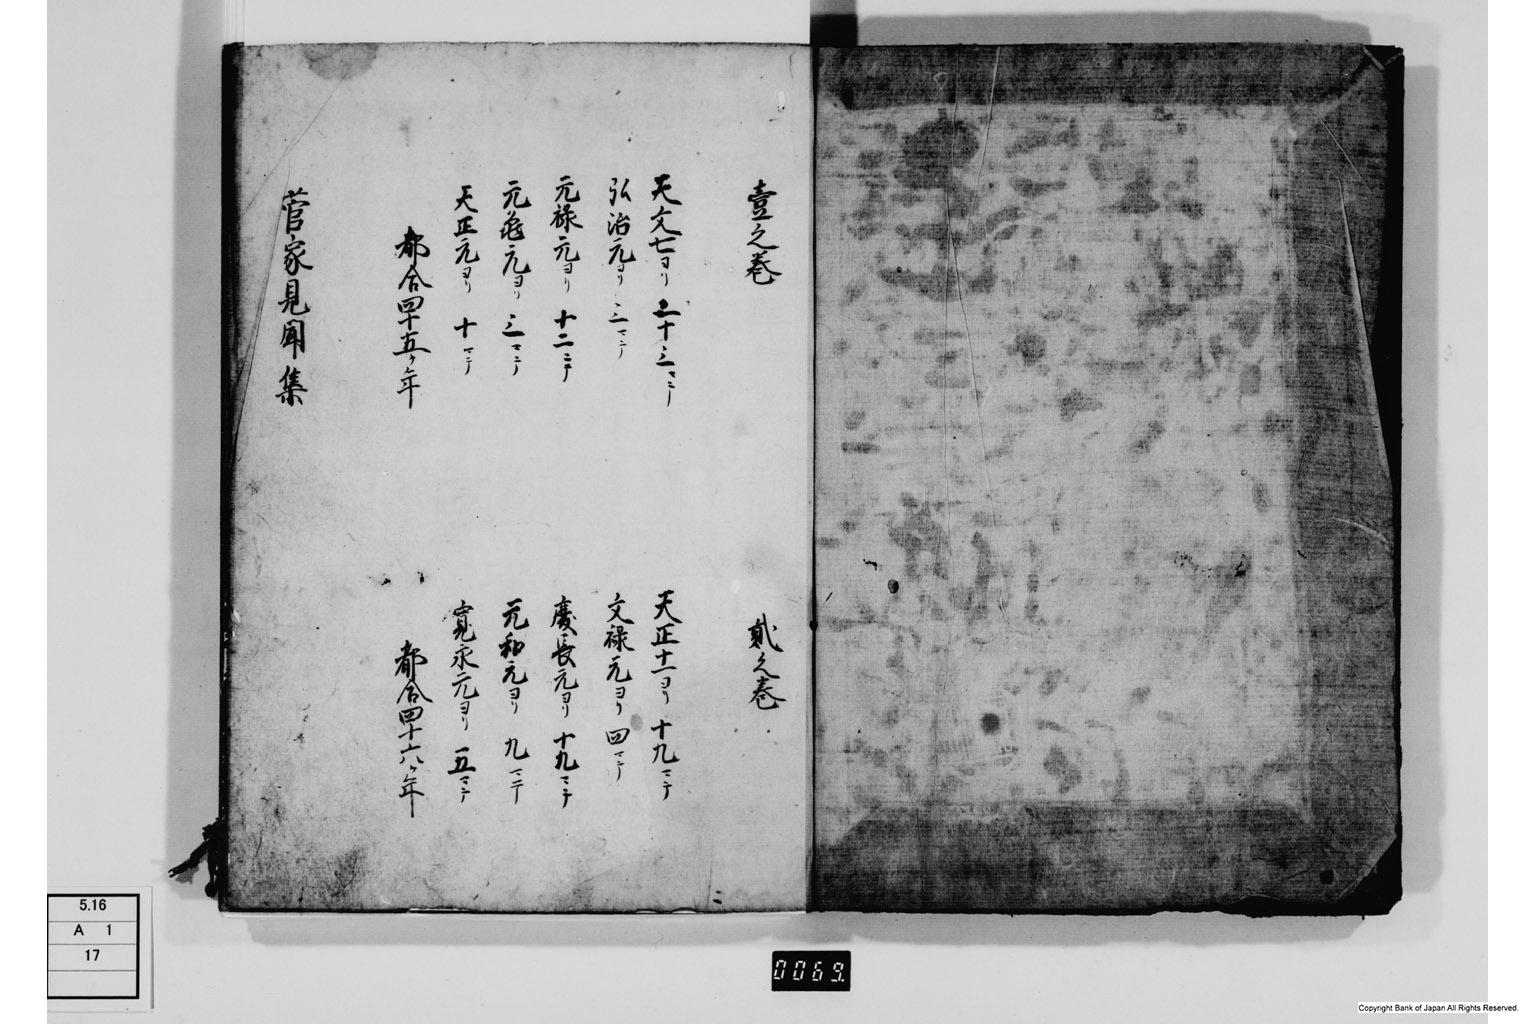 壹之巻
天文七ヨリ 二十三マテ
弘治元ヨリ 三マテ
元禄元ヨリ 十二マテ
元亀元ヨリ 三マテ
天正元ヨリ 十マテ
都合四十五ヶ年
貳之巻
天正十一ヨリ 十九マテ
文禄元ヨリ 四マテ
慶長元ヨリ 十九マテ
元和元ヨリ 九マテ
寛永元ヨリ 五マテ
都合四十六ヶ年
菅家見聞集
5.16
A 1
17
0069.
Copyright Bank of Japan All Rights Reserved.